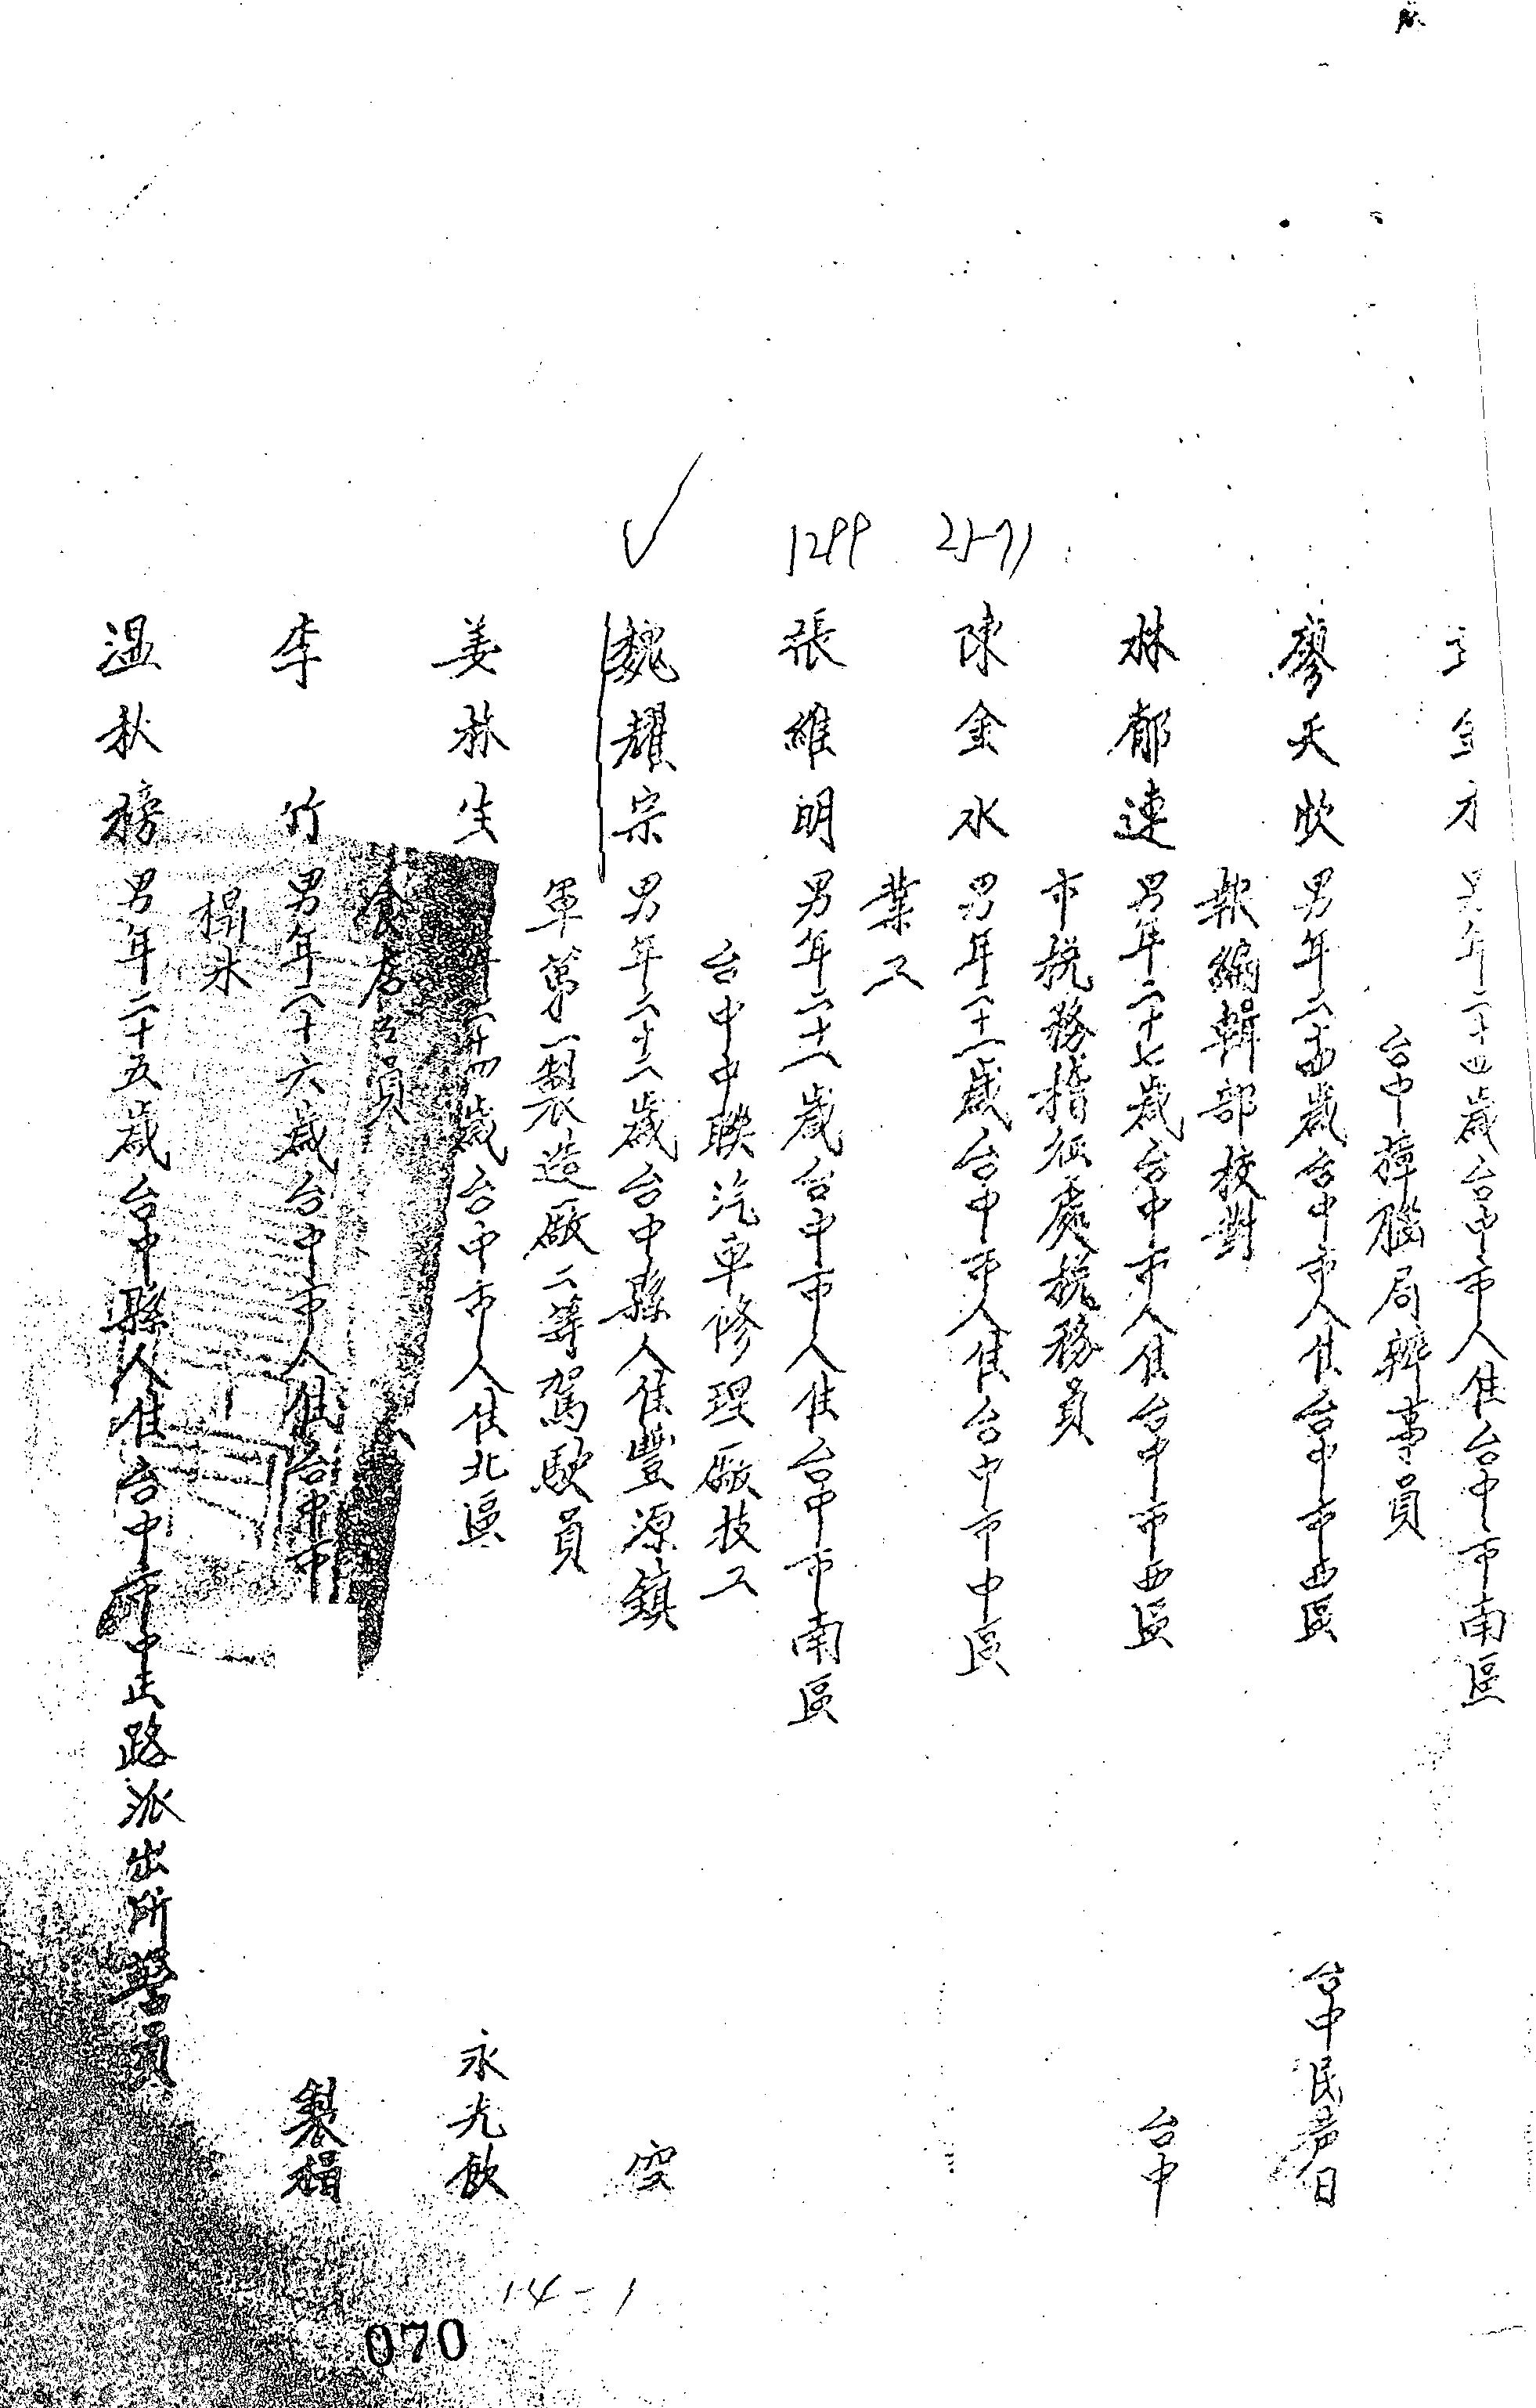 金 男年二十四歲台中市人住台中市南區
台中樟腦局辦事員
廖天欣 男年二十四歲台中市人住台中市西區 台中民声日
報編輯部校對
林郁連 男年二十七歲台中市人住台中市西區 台中
市稅務稽征處稅務員
陳金水 男年二十一歲台中市人住台中市中區
業工
張維明 男年二十八歲台中市人住台中市南區
台中中聯汽車修理廠技工
魏耀宗 男年二十二歲台中縣人住豐源鎮 空
軍第一製造廠二等駕駛員
姜林生 年二十四歲台中市人住北區 永光飲
食店店員
李竹 男年二十六歲台中市人住台中市 製榻
榻木
溫秋榜 男年二十五歲台中縣人住台中市中正路派出所警員
1299
14-1
070